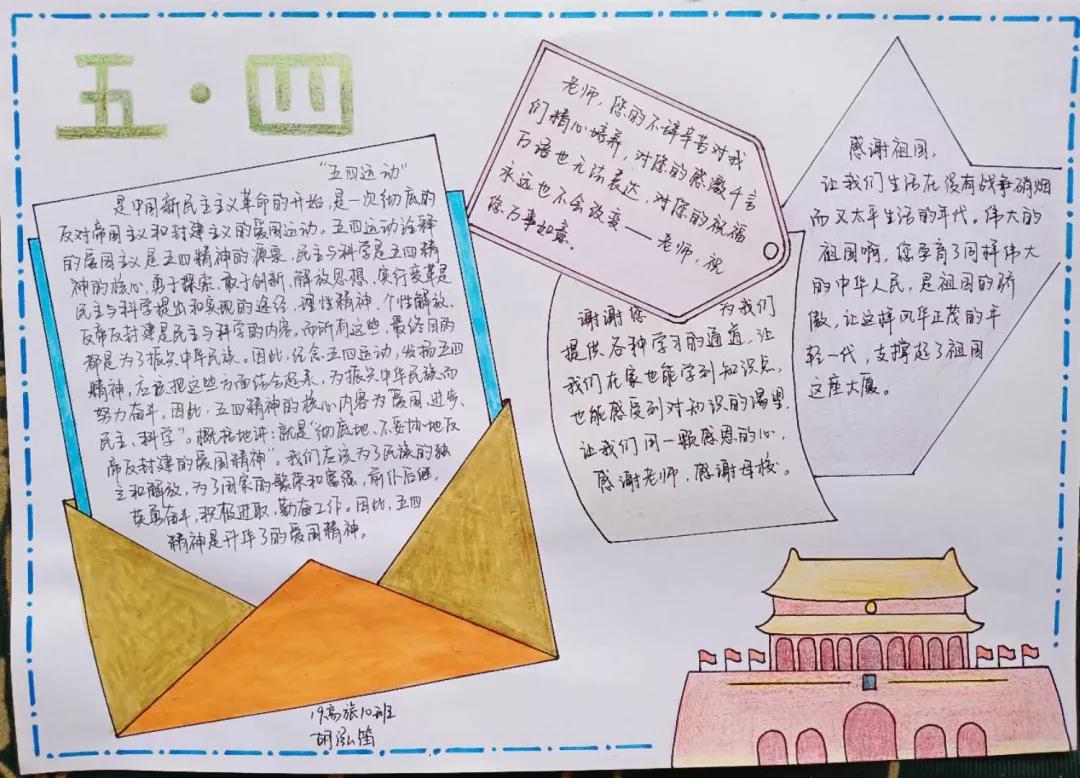 五·四
“五四运动”
是中国新民主主义革命的开始，是一次彻底的
反对帝国主义和封建主义的爱国运动。五四运动诠释
的爱国主义是五四精神的源泉，民主与科学是五四精
神的核心，勇于探索、敢于创新、解放思想、实行变革是
民主与科学提出和实现的途经，理性精神、个性解放、
反帝反封建是民主与科学的内容，而所有这些，最终目的
都是为了振兴中华民族。因此，纪念五四运动，发扬五四
精神，应该把这些方面结合起来，为振兴中华民族而
努力奋斗。因此，五四精神的核心内容为“爱国、进步、
民主、科学”。概括地讲：就是“彻底地、不妥协地反
帝反封建的爱国精神”。我们应该为了民族的独
立和解放，为了国家的繁荣和富强，前仆后继，
英勇奋斗，积极进取，勤奋工作。因此，五四
精神是升华了的爱国精神。
老师，您的不辞辛苦对我
们精心培养，对您的感激千言
万语也无法表达，对您的祝福
永远也不会改变——老师，祝
您万事如意。
谢谢您 为我们
提供各种学习的通道，让
我们在家也能学到知识点，
也能感受到对知识的渴望，
让我们用一颗感恩的心，
感谢老师，感谢母校。
感谢祖国，
让我们生活在没有战争硝烟
而又太平生活的年代。伟大的
祖国啊，您孕育了同样伟大
的中华人民，是祖国的骄
傲，让这样风华正茂的年
轻一代，支撑起了祖国
这座大厦。
19高旅10班
胡泓笛